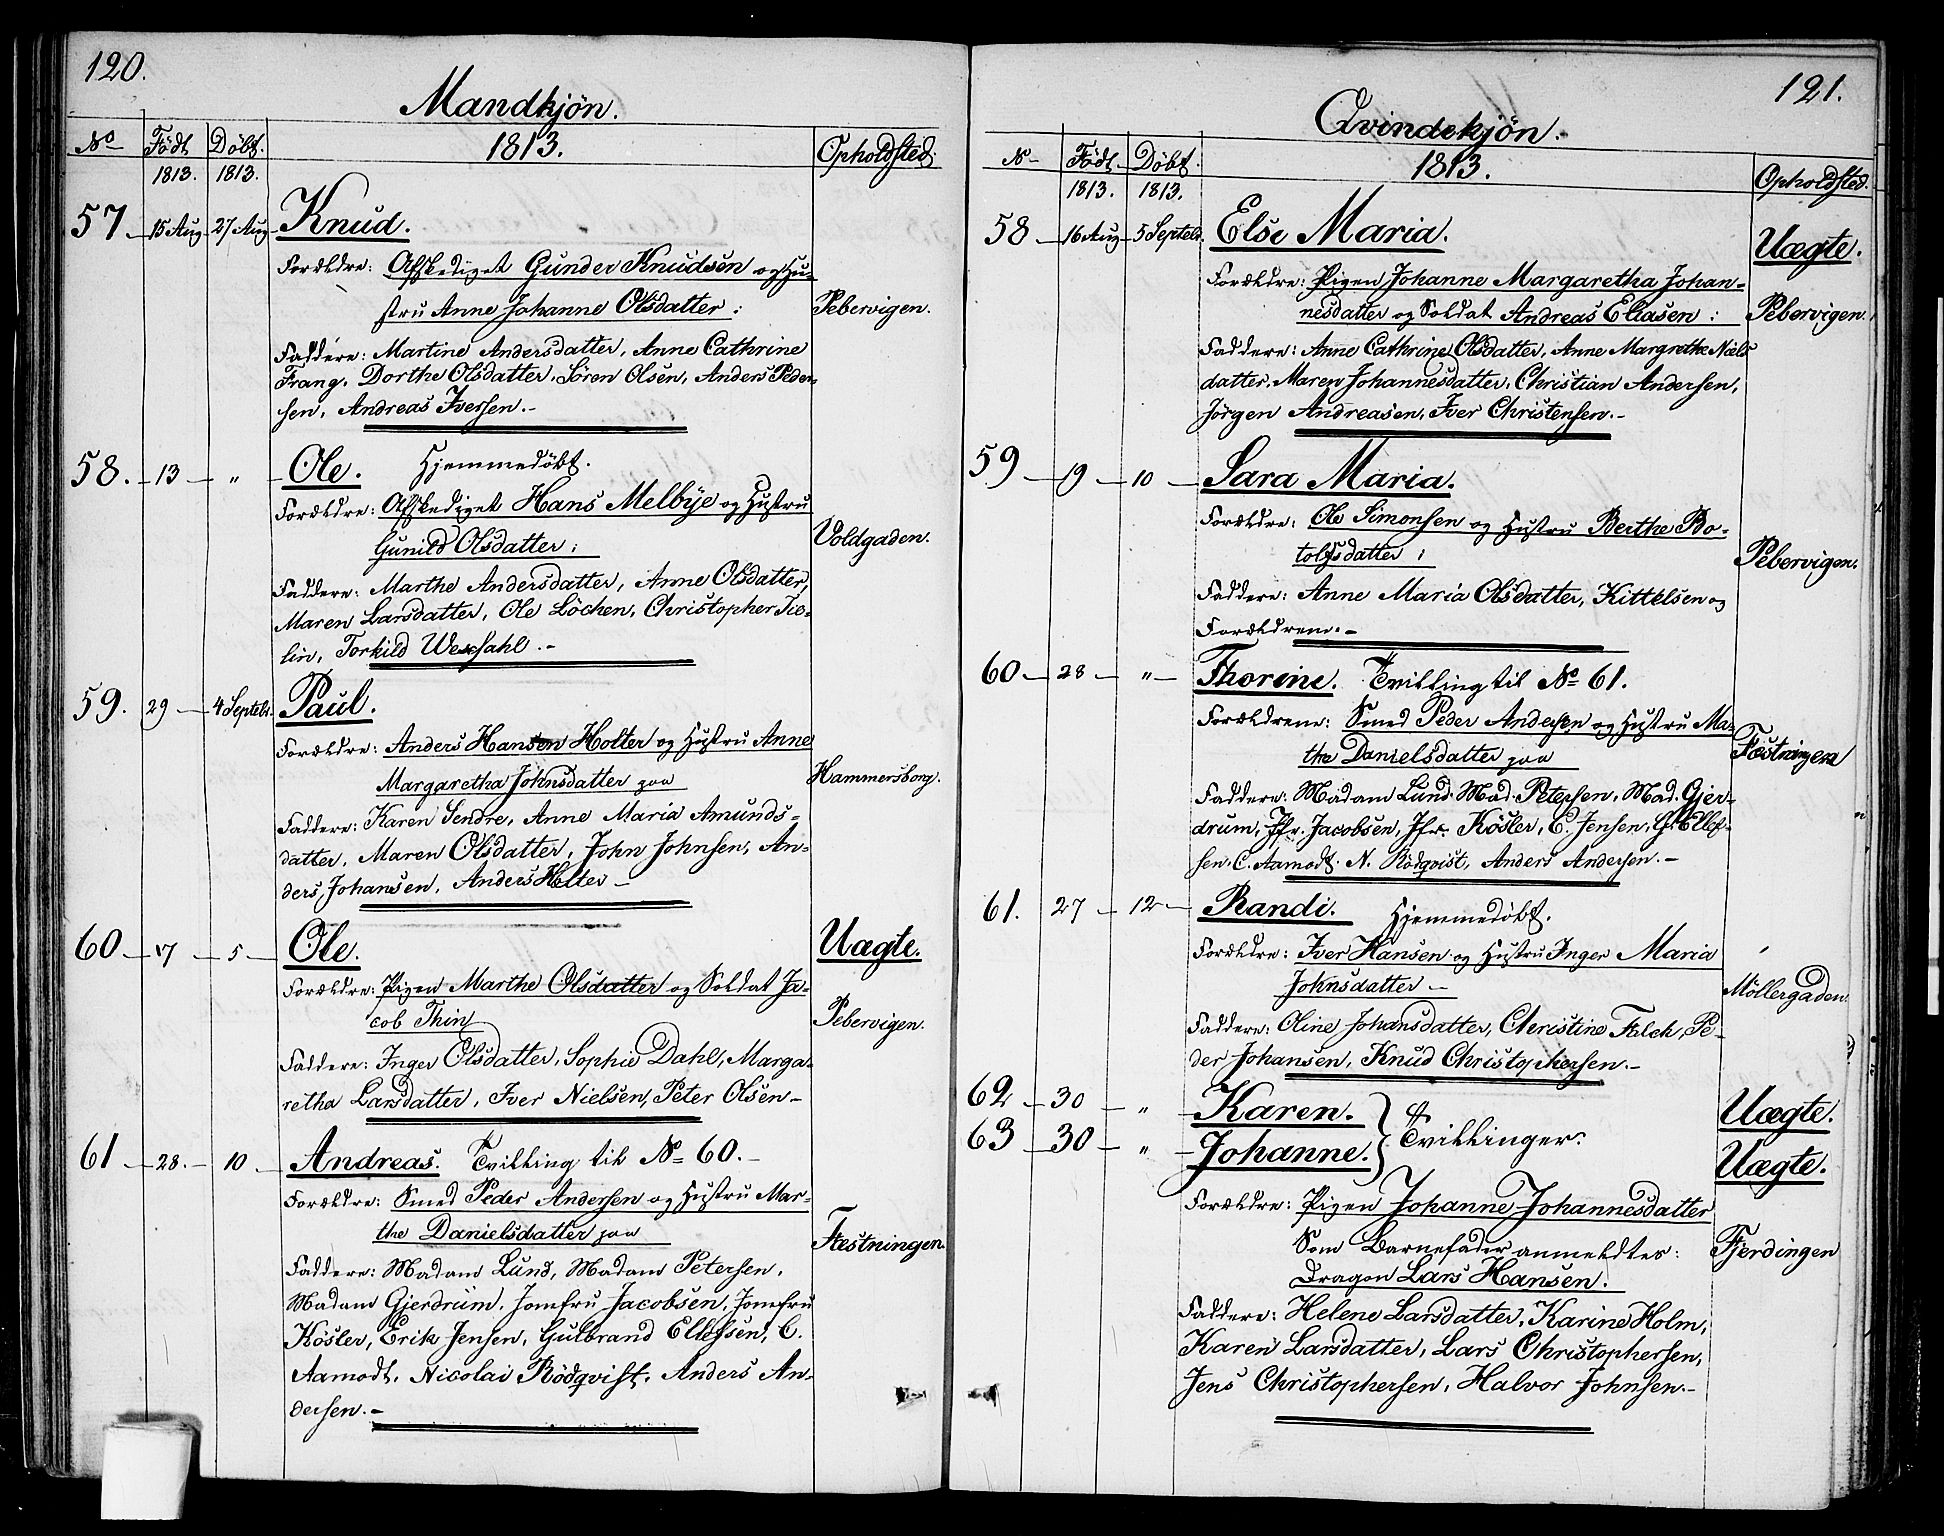 120.
Mandkjön.
No Födt Döbt. 1813. Opholdsted.
1813. 1813.
57 15 Aug 27 Aug Knud.
Forældre: Afskediget Gunder Knudsen og Hu-
stru Anne Johanne Olsdatter: Pebervigen.
Faddere: Martine Andersdatter, Anne Cathrine
Frang, Dorthe Olsdatter, Sören Olsen, Anders Peder-
sen, Andreas Iversen.-
58. 13 " Ole. Hjemmedöbt.
Forældre: Afskediget Hans Melbÿe og Hustru
Gunild Olsdatter: Voldgaden.
Faddere: Marthe Andersdatter, Anne Olsdatter,
Maren Larsdatter, Ole Löchen, Christopher Tie-
lin, Torkild Wexsahl.-
59. 29 4 Septebr. Paul.
Forældre: Anders Hansen Holter og Hustru Anne
Margaretha Johnsdatter paa Hammersborg.
Faddere: Karen Sendre, Anne Maria Amunds-
datter, Maren Olsdatter, John Johnsen, An-
ders Johansen, Anders Holter-
60 17 5 Ole. Uægte.
Forældre: Pigen Marthe Olsdatter og Soldat Ja-
cob Thin Pebervigen.
Faddere: Inger Olsdatter, Sophie Dahl, Marga-
retha Larsdatter, Iver Nielsen, Peter Olsen-
61 28. 10 Andreas. Tvilling til No 60.-
Forældre: Smed Peder Andersen og Hustru Mar-
the Danielsdatter paa Fæstningen.
Faddere: Madam Lund, Madam Petersen,
Madam Gjerdrum, Jomfru Jacobsen, Jomfru
Kösler, Erik Jensen, Gulbrand Ellefsen, C.
Aamodt, Nicolai Rödqvist, Anders An-
dersen.-
121.
Qvindekjön.
No Födt Döbt. 1813. Opholdsted.
1813. 1813.
58 16 Aug 5 Septebr. Else Maria. Uægte.
Forældre: Pigen Johanne Margaretha Johan-
nesdatter og Soldat Andreas Eliasen: Pebervigen.
Faddere: Anne Cathrine Olsdatter, Anne Margrethe Niels
datter, Maren Johannesdatter, Christian Andersen,
Jörgen Andreasen, Iver Christensen.-
59 19 10 Sara Maria.
Forældre: Ole Simonsen og Hustru Berthe Bo-
tolfsdatter: Pebervigen.
Faddere: Anne Maria Olsdatter, Kittelsen og
Forældrene.-
60 28 " Thorine. Tvilling til No 61.
Forældrene: Smed Peder Andersen og Hustru Mar-
the Danielsdatter paa Fæstningen
Faddere: Madam Lund, Mad. Petersen, Mad. Gjer-
drum, Jfr. Jacobsen, Jfr. Kösler, E. Jensen, G. Ellef-
sen, C. Aamodt, N. Rödqvist, Anders Andersen.-
61. 27 12 Randi. Hjemmedöbt.
Forældre: Iver Hansen og Hustru Inger Maria
Johnsdatter- Möllergaden.
Faddere: Oline Johansdatter, Christine Falck, Pe-
der Johansen, Knud Christophersen.-
62 30 " Karen. Uægte.
63 30 " Johanne. Tvillinger. Uægte.
Forældre: Pigen Johanne Johannesdatter
Som Barnefader anmeldtes: Fjerdingen
Dragon Lars Hansen.
Faddere: Helene Larsdatter, Karine Holm,
Karen Larsdatter, Lars Christophersen,
Jens Christophersen, Halvor Johnsen.-